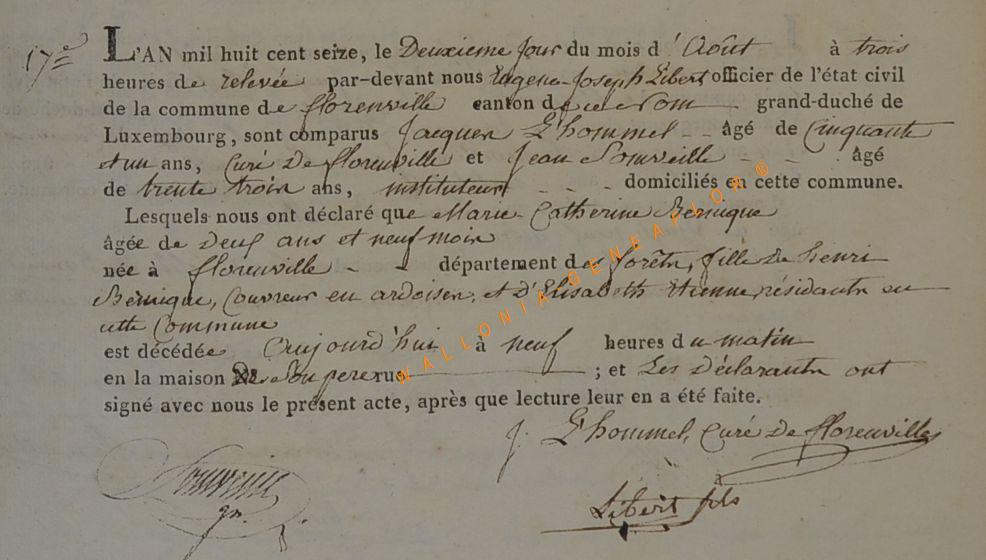 17e
L'AN mil huit cent seize, le Deuxieme jour du mois d'Août à trois
heures de relevée par-devant nous Eugene-Joseph Libert officier de l'état civil
de la commune de florenville canton de ce nom grand-duché de
Luxembourg, sont comparus Jacques L'hommel âgé de Cinquante
et un ans, Curé De florenville et Jean Somveille âgé
de trente trois ans, instituteur domiciliés en cette commune.
Lesquels nous ont déclaré que Marie Catherine Bernique
âgée de Deux ans et neuf mois
née à florenville département des forêts, fille De henri
Bernique, Couvreur en ardoises, et D'Elisabeth Etienne, résidants en
cette Commune
est décédée aujourd'hui à neuf heures du matin
en la maison De Son pere rue ; et Les Déclarants ont
signé avec nous le présent acte, après que lecture leur en a été faite.
J. L'hommel, Curé De florenville
Somveille
Libert fils
WALLONIA GENEAFLOR ©